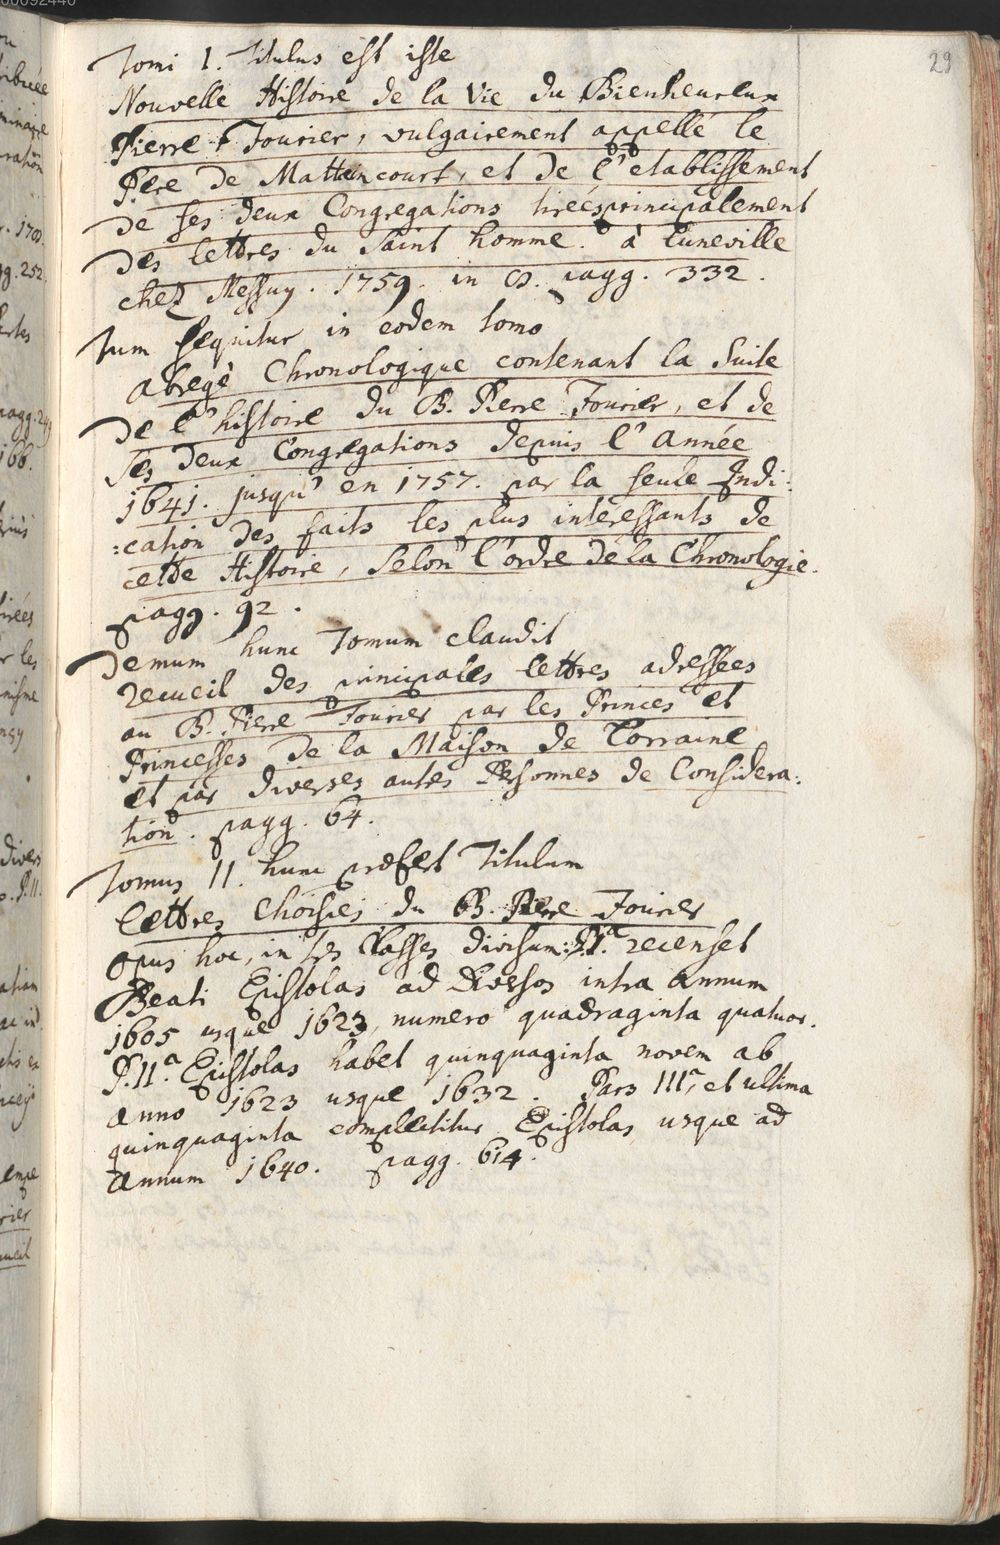 29
Tomi I. Titulus est iste
Nouvelle Histoire de la Vie du Bienheureux
Pierre Fourier, vulgairement appellé le
Pere de Mattaincourt, et de l'etablissement
de ses deux Congregations tireés principalement
des lettres du Saint homme. à Luneville
chez Messuy. 1759. in 8. pagg. 332.
Tum sequitur in eodem tomo
Abregé Chronologique contenant la Suite
de l'histoire du B. Pierre Fourier, et de
ses deux Congregations depuis l'Année
1641. jusqu' en 1757. par la seule Indi:
:cation des faits les plus intéressants de
cette Histoire, Selon l'ordre de la Chronologie.
pagg. 92.
Demum hunc Tomum claudit
recueil des principales lettres adressees
au B. Piere Fourier par les Princes et
Princesses de la Maison de Lorraine
et par diverses autes Personnes de Considera:
tion. pagg. 64.
Tomus II. hunc præfert Titulum
Lettres Choisies du B. Piere Fourier
Opus hoc, in tres Classes divisum: P.I.a recenset
Beati Epistolas ad diversos intra Annum
1605 usque 1623, numero quadraginta quatuor.
P.II.a Epistolas habet quinquaginta novem ab
anno 1623 usque 1632. Pars III.a, et ultima
quinquaginta complectitur Epistolas usque ad
Annum 1640. pagg. 614.